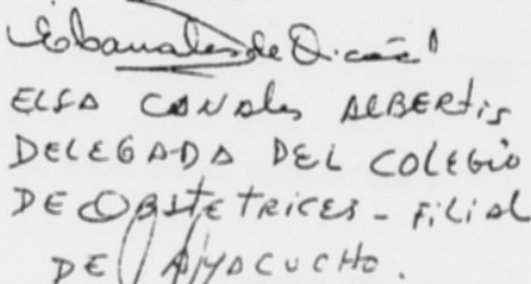 ELSA CANALES ALBERTIS
DELEGADA DEL COLEGIO
DE OBSTETRICES - FILIAL
DE AYACUCHO.